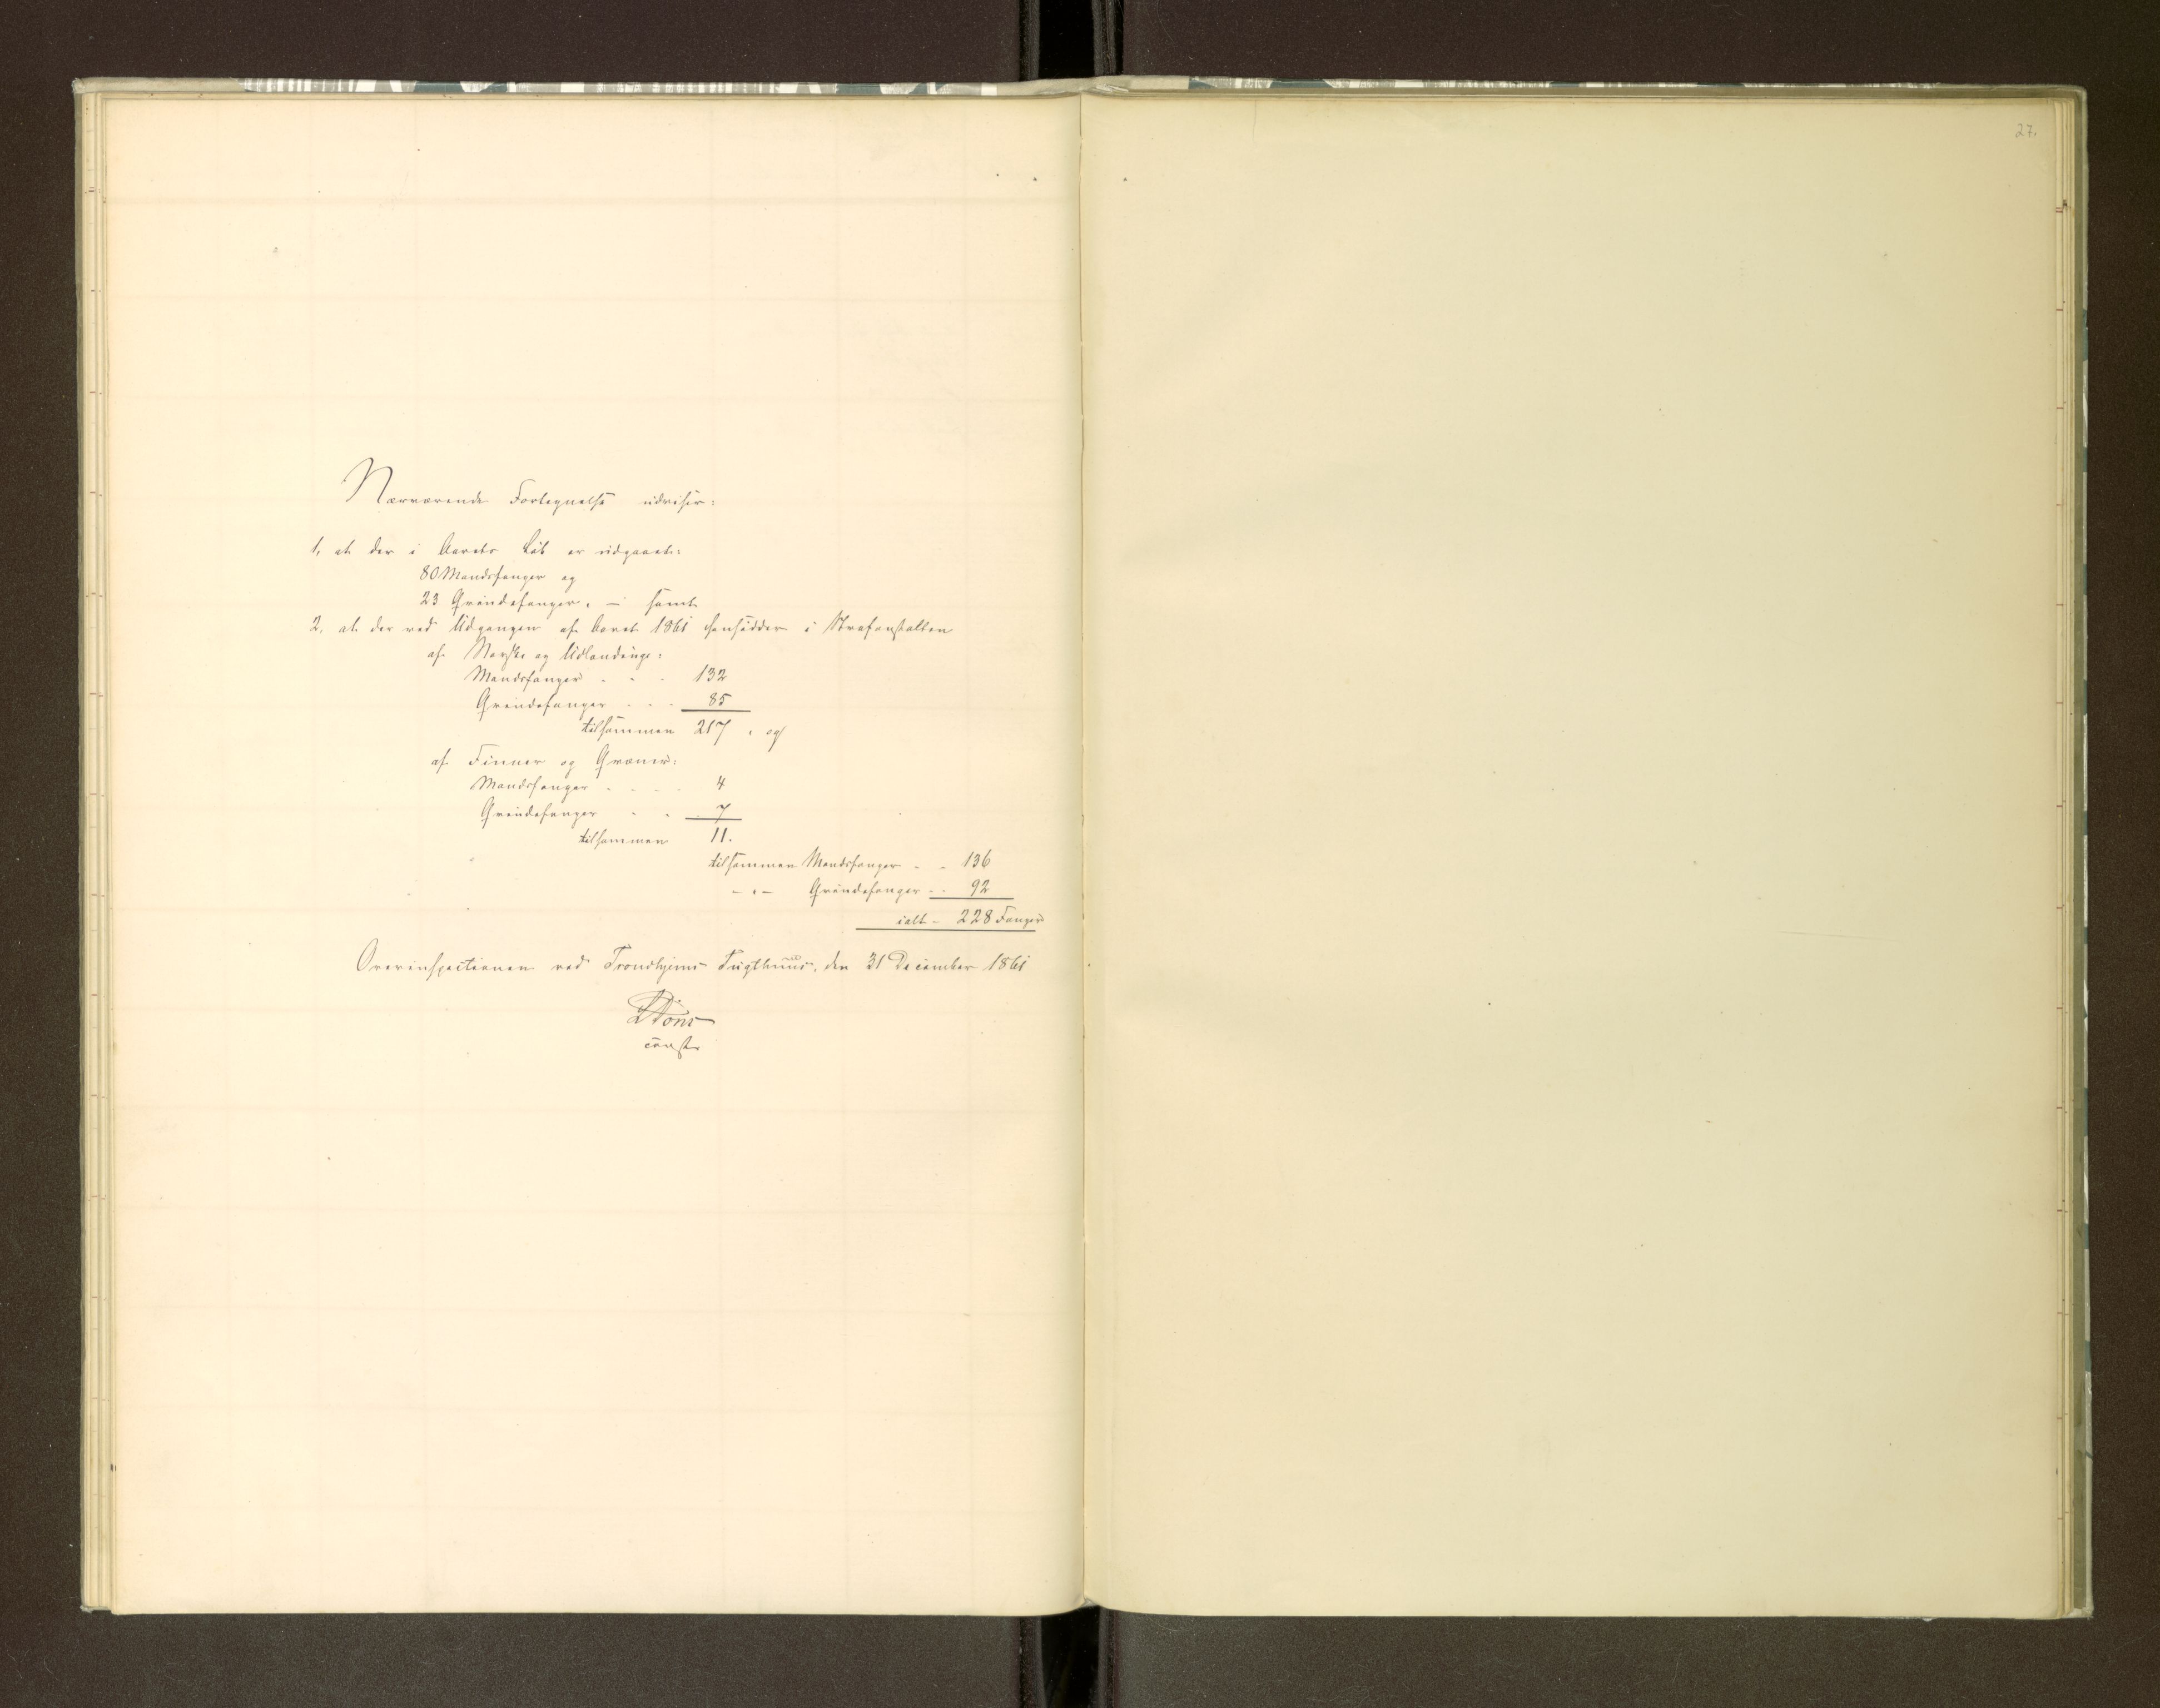 27.
Nærværende Fortegnelse udviser:
1, at der i Aarets Løb er udgaaet:
80 Mandsfanger og
23 Qvindefanger, – samt
2, at der ved Udgangen af Aaret 1861 hensidder i Strafanstalten
af Norske og Udlændinge:
Mandsfanger - - - 132
Qvindefanger - - - 85
tilsammen 217, og
af Finner og Qvæner:
Mandsfanger - - - - 4
Qvindefanger - - 7
tilsammen 11.
tilsammen Mandsfanger - - 136
– „ – Qvindefanger - - 92
ialt - 228 Fanger
Overinspectionen ved Trondhjems Tugthuus, den 31 December 1861
const.